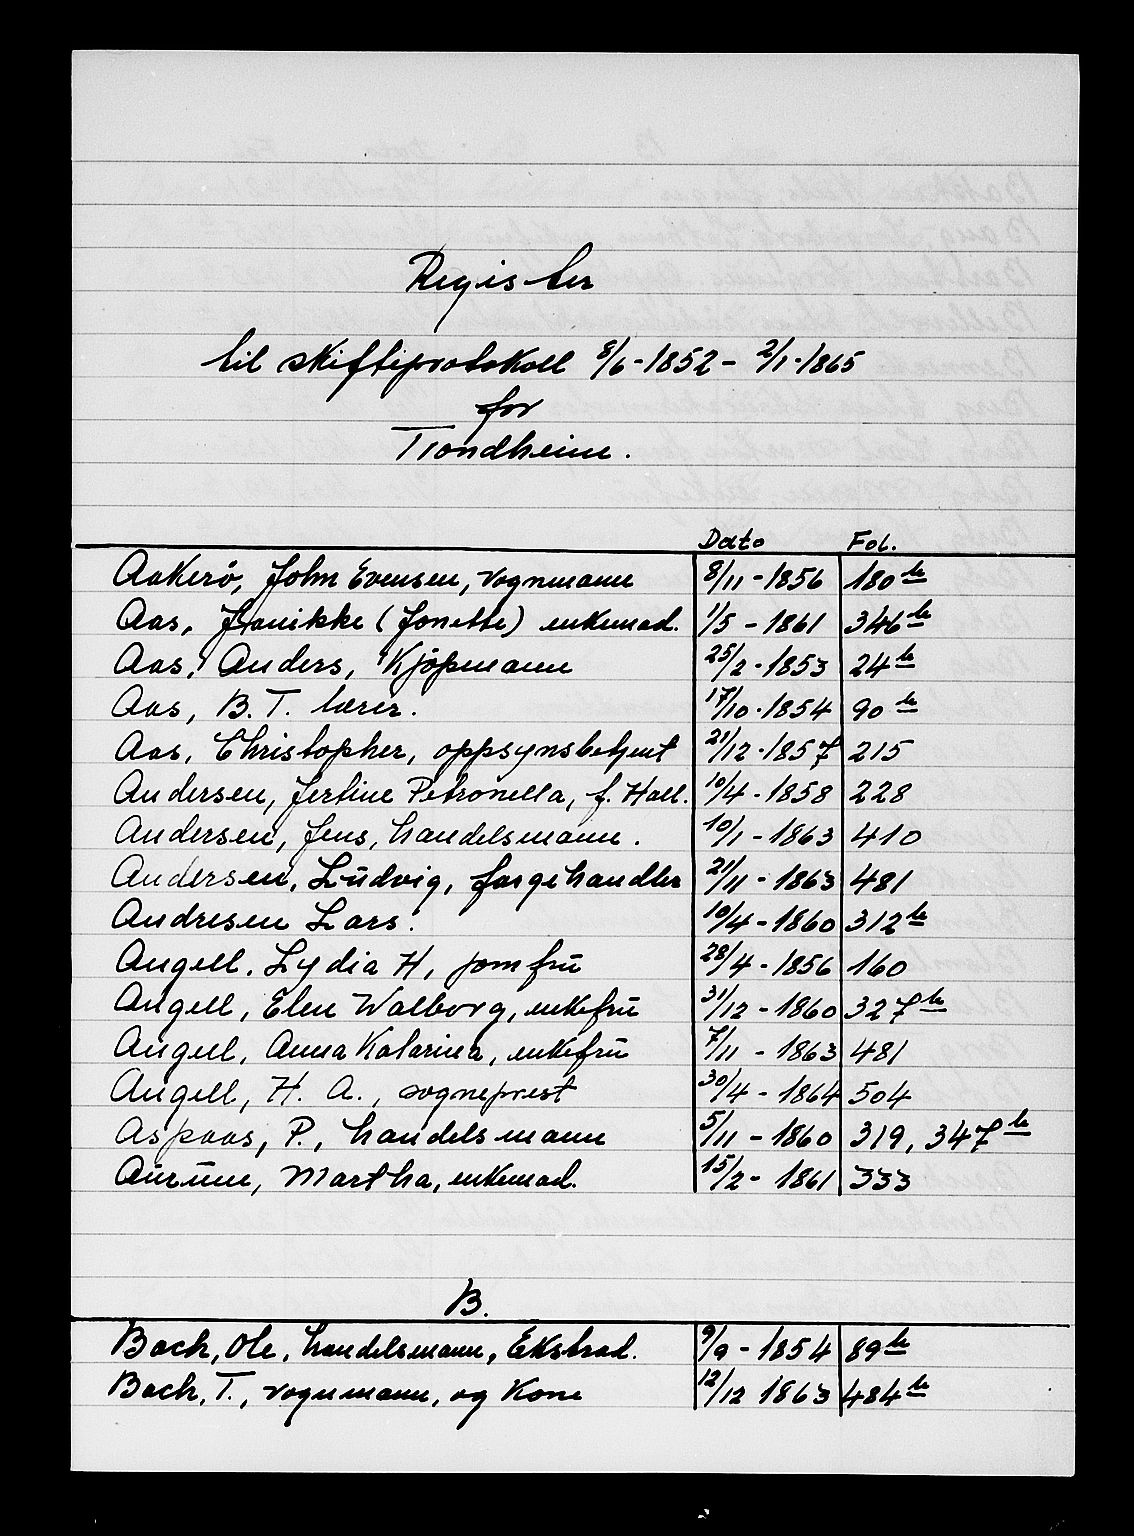 Register
til skifteprotokoll 8/6-1852 - 2/1-1865
for
Trondheim.
Dato Fol.
Aakerö, John Evensen, vognmann 8/11-1856 180 b
Aas, Jannikke (Jonette) enkemad. 1/5-1861 346 b
Aas, Anders, Kjöpmann 25/2-1853 24 b
Aas, B. T. lærer. 17/10-1854 90 b
Aas, Christopher, oppsynsbetjent 21/12-1857 215
Andersen, Jertine Petronella, f. Hall. 10/4-1858 228
Andersen, Jens, handelsmann. 10/1-1863 410
Andersen, Ludvig, fargehandler 21/11-1863 481
Andresen Lars. 10/4-1860 312 b
Angell, Lydia H, jomfru 28/4-1856 160
Angell, Elen Walborg, enkefru 31/12-1860 327 b
Angell, Anna Katarina, enkefru 7/11-1863 481
Angell, H. A., sogneprest 30/4-1864 504
Aspaas, P., handelsmann 5/11-1860 319, 347 b
Aurune, Martha, enkemad. 15/2-1861 333
B.
Bach, Ole, handelsmann, Ekstrad. 9/9-1854 89 b
Bach, T., vognmann, og Kone 12/12 1863 484 b